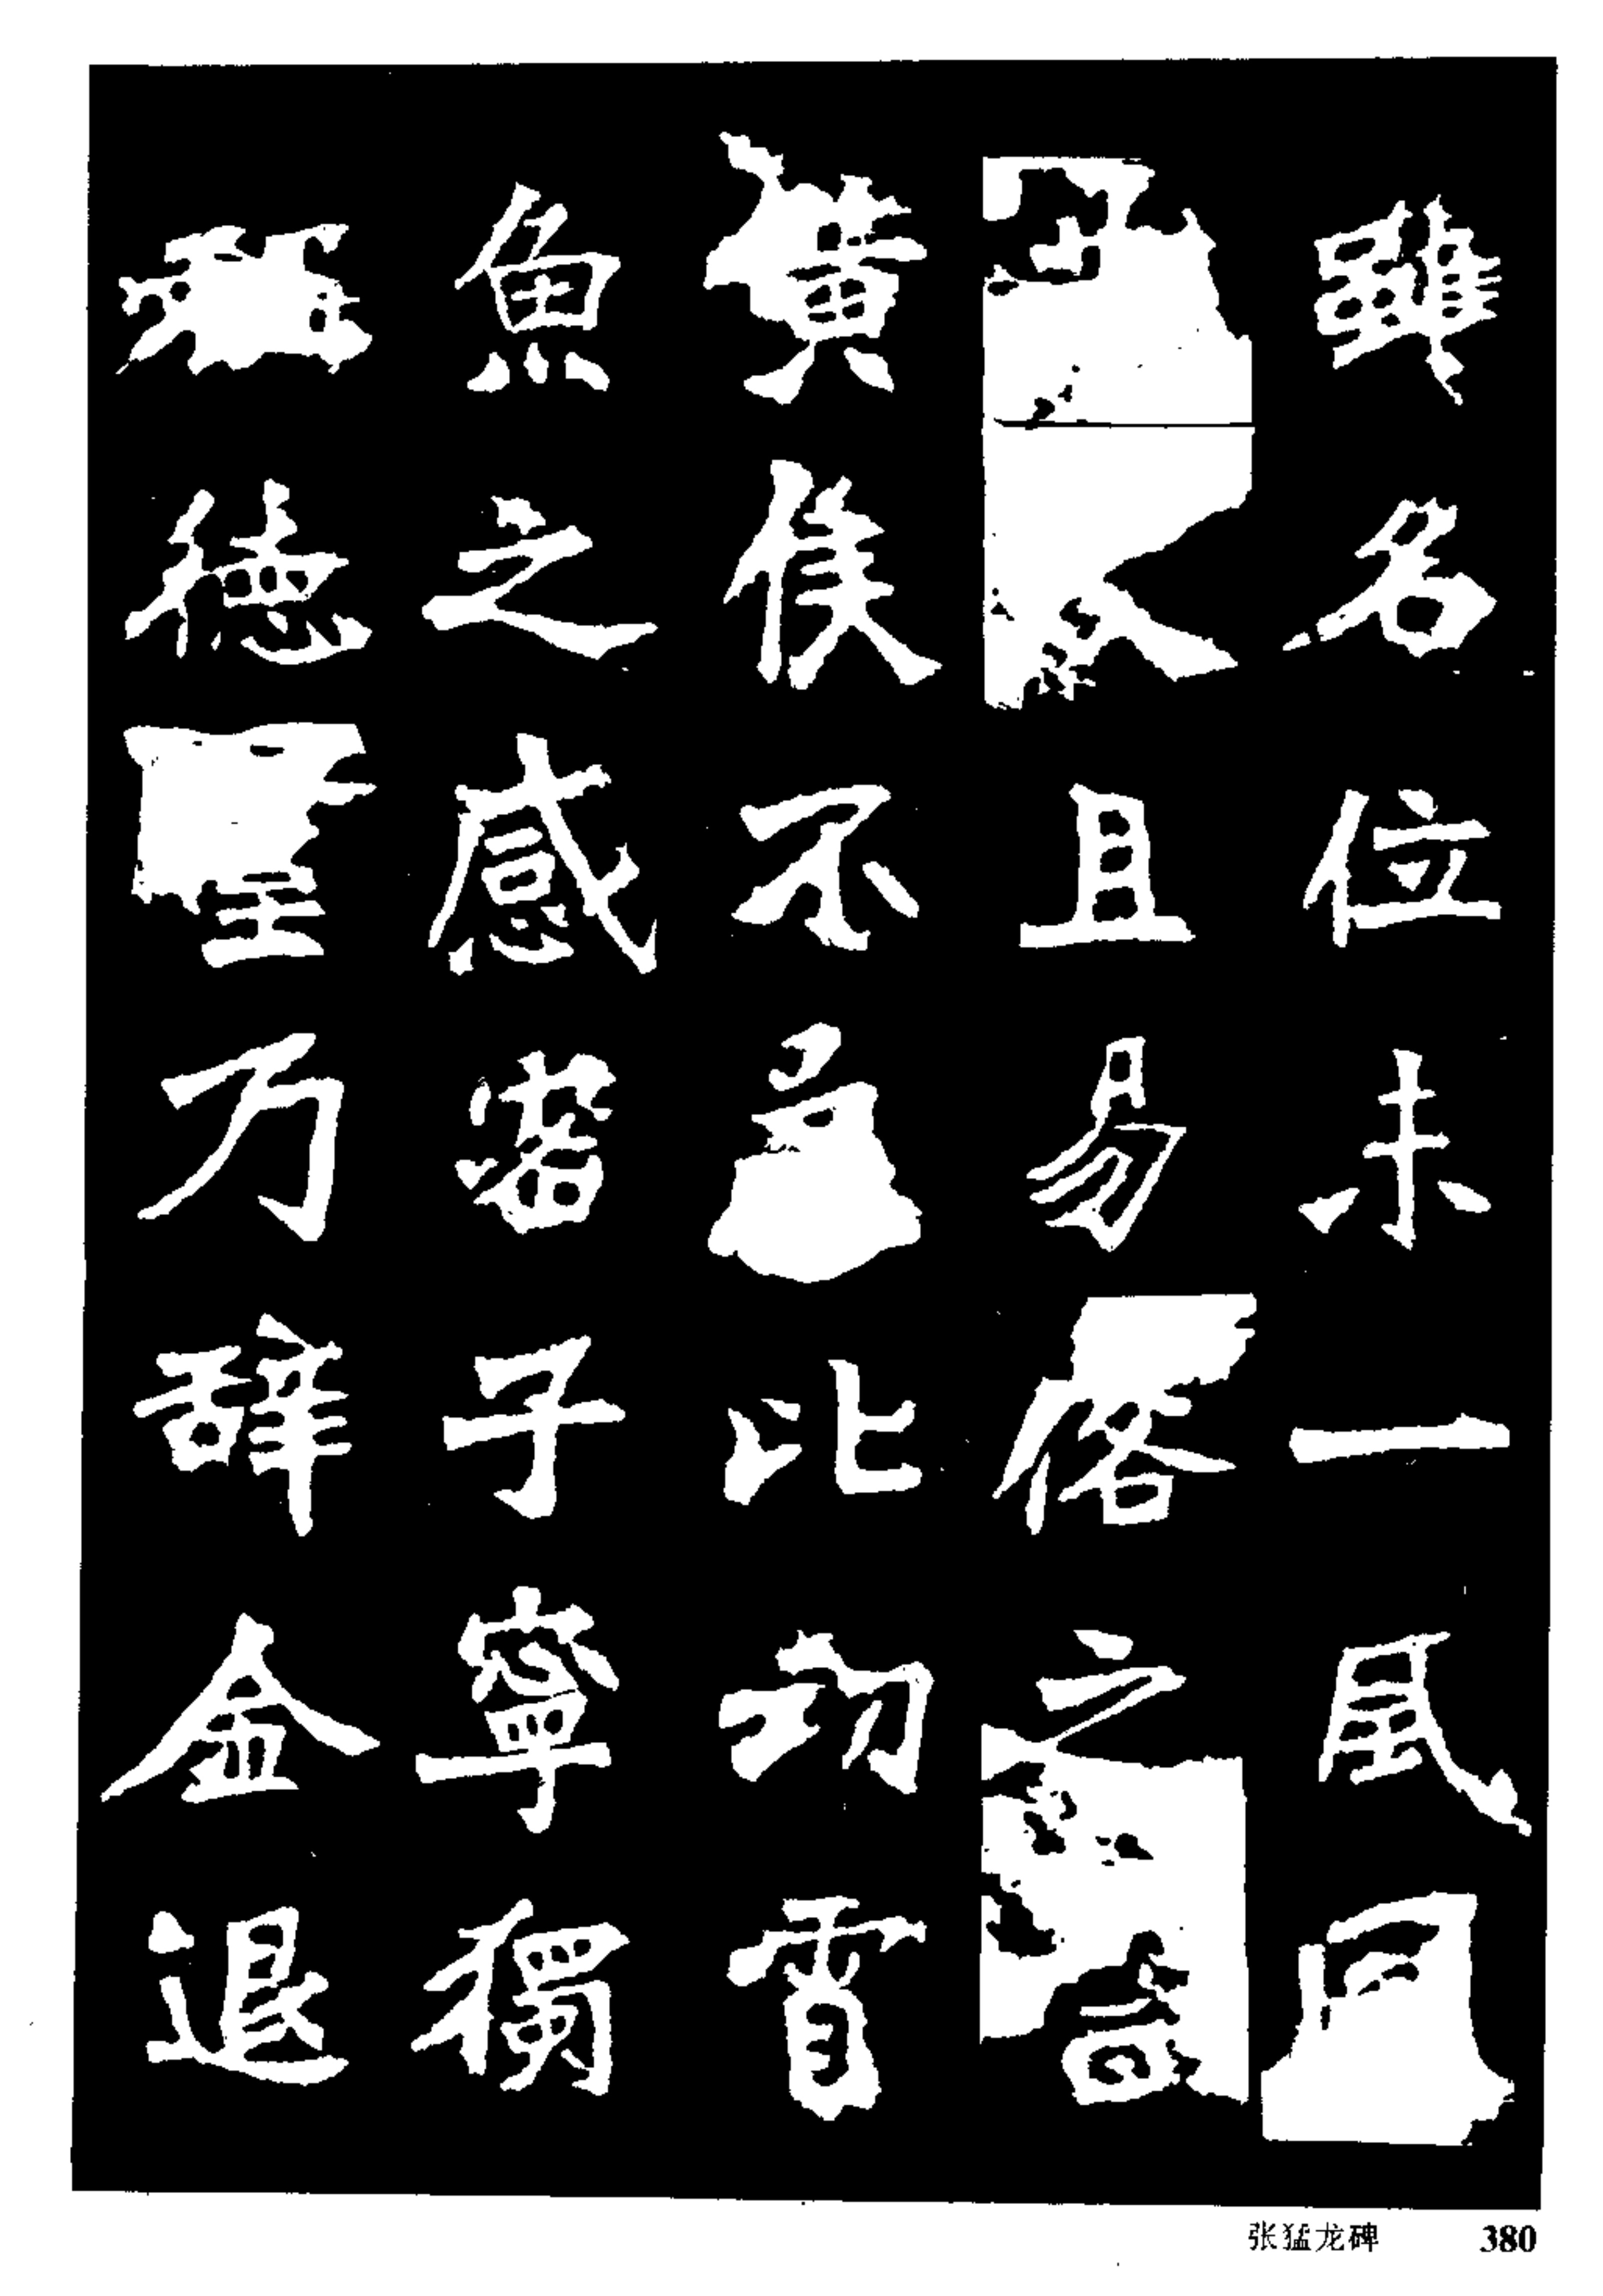 雖名位未一風
且易俗之
黃侯不比功霄
魚之感密子寧獨
德乃辭金退
张猛龙碑 380